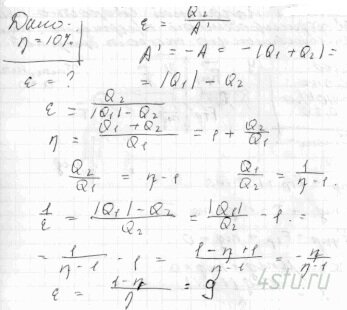 Дано:
η = 10%.
ε = ?
ε = Q₂/A'
A' = -A = -(Q₁ + Q₂) =
= |Q₁| - Q₂
ε = Q₂/(|Q₁| - Q₂)
η = (Q₁ + Q₂)/Q₁ = 1 + Q₂/Q₁
Q₂/Q₁ = η - 1 Q₁/Q₂ = 1/(η - 1).
1/ε = (|Q₁| - Q₂)/Q₂ = |Q₁|/Q₂ - 1. =
= 1/(η - 1) - 1 = (1 - η + 1)/(η - 1) = -η/(η - 1)
ε = (1 - η)/η = 9
4stu.ru